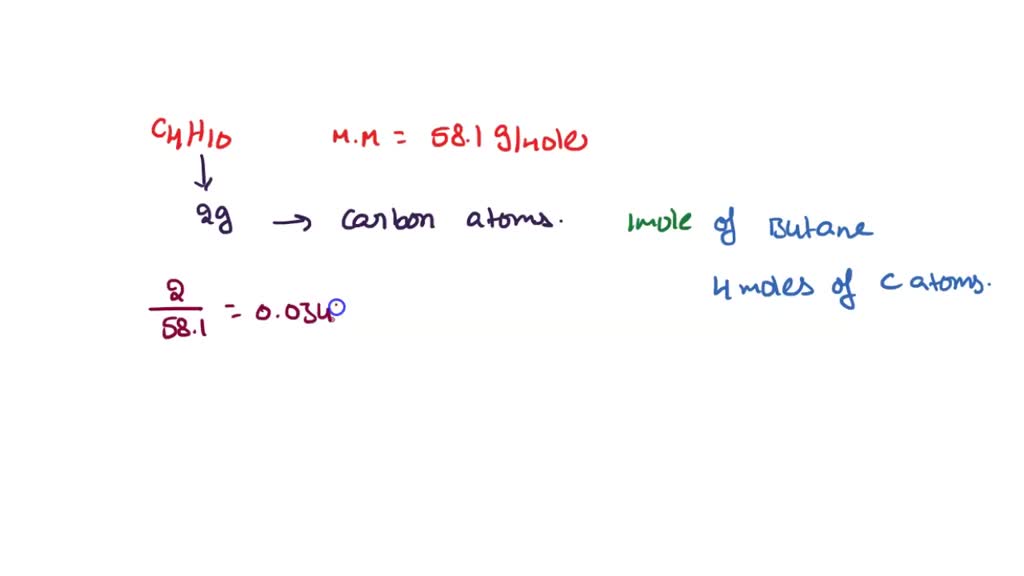 C4H10 M.M = 58.1 g/mole
2g → carbon atoms. 1mole of Butane
4 moles of C atoms.
2/58.1 = 0.034